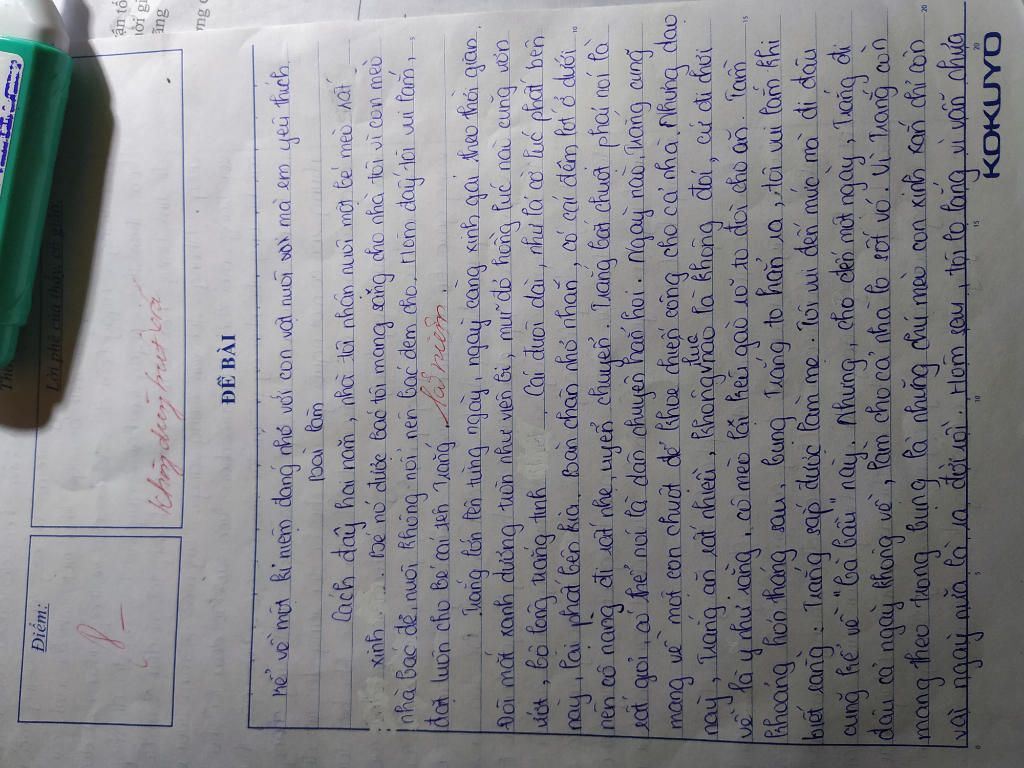 Điểm:
8-
Lời phê của thầy, cô giáo
Không dùng bút xóa
ĐỀ BÀI
Kể về một kỉ niệm đáng nhớ với con vật nuôi mà em yêu thích
Bài làm
Cách đây hai năm, nhà tôi nhận nuôi một bé mèo rất
xinh. Bé nó được bác tôi mang sang cho nhà tôi vì con mèo
nhà bác đẻ, nuôi không nổi nên bác đem cho. Hôm đấy tôi vui lắm,
đặt luôn cho bé cái tên Trắng
Trắng lớn lên từng ngày, ngày càng xinh gái theo thời gian.
Đôi mắt xanh dương tròn như viên bi, mũi đỏ hồng lúc nào cũng ươn
ướt, bộ lông trắng tinh. Cái đuôi dài, như lá cờ lúc phất bên
này, lại phất bên kia. Bàn chân nhỏ nhắn, có cái đệm lót ở dưới
nên cô nàng đi rất nhẹ, uyển chuyển. Trắng bắt chuột phải nói là
rất giỏi, có thể nói là dân chuyên
mang về một con chuột để khoe chiến công cho cả nhà. Nhưng dạo
này, Trắng ăn rất nhiều, không là không đói, cứ đi chơi
về là y như rằng, cô mèo lại kêu gào
khoảng bốn tháng sau, bụng Trắng to hẳn ra, tôi vui lắm khi
biết rằng: Trắng sắp được làm mẹ. Tôi vui đến mức mà đi đâu
cũng kể về "bà bầu" này. Nhưng, cho đến một ngày, Trắng đi
đâu cả ngày không về, làm cho cả nhà lo sốt vó. Vì Trắng còn
mang theo trong bụng là những chú mèo con xinh xắn chỉ còn
vài ngày nữa là ra đời rồi. Hôm sau, tôi lo lắng vì vẫn chưa
KOKUYO